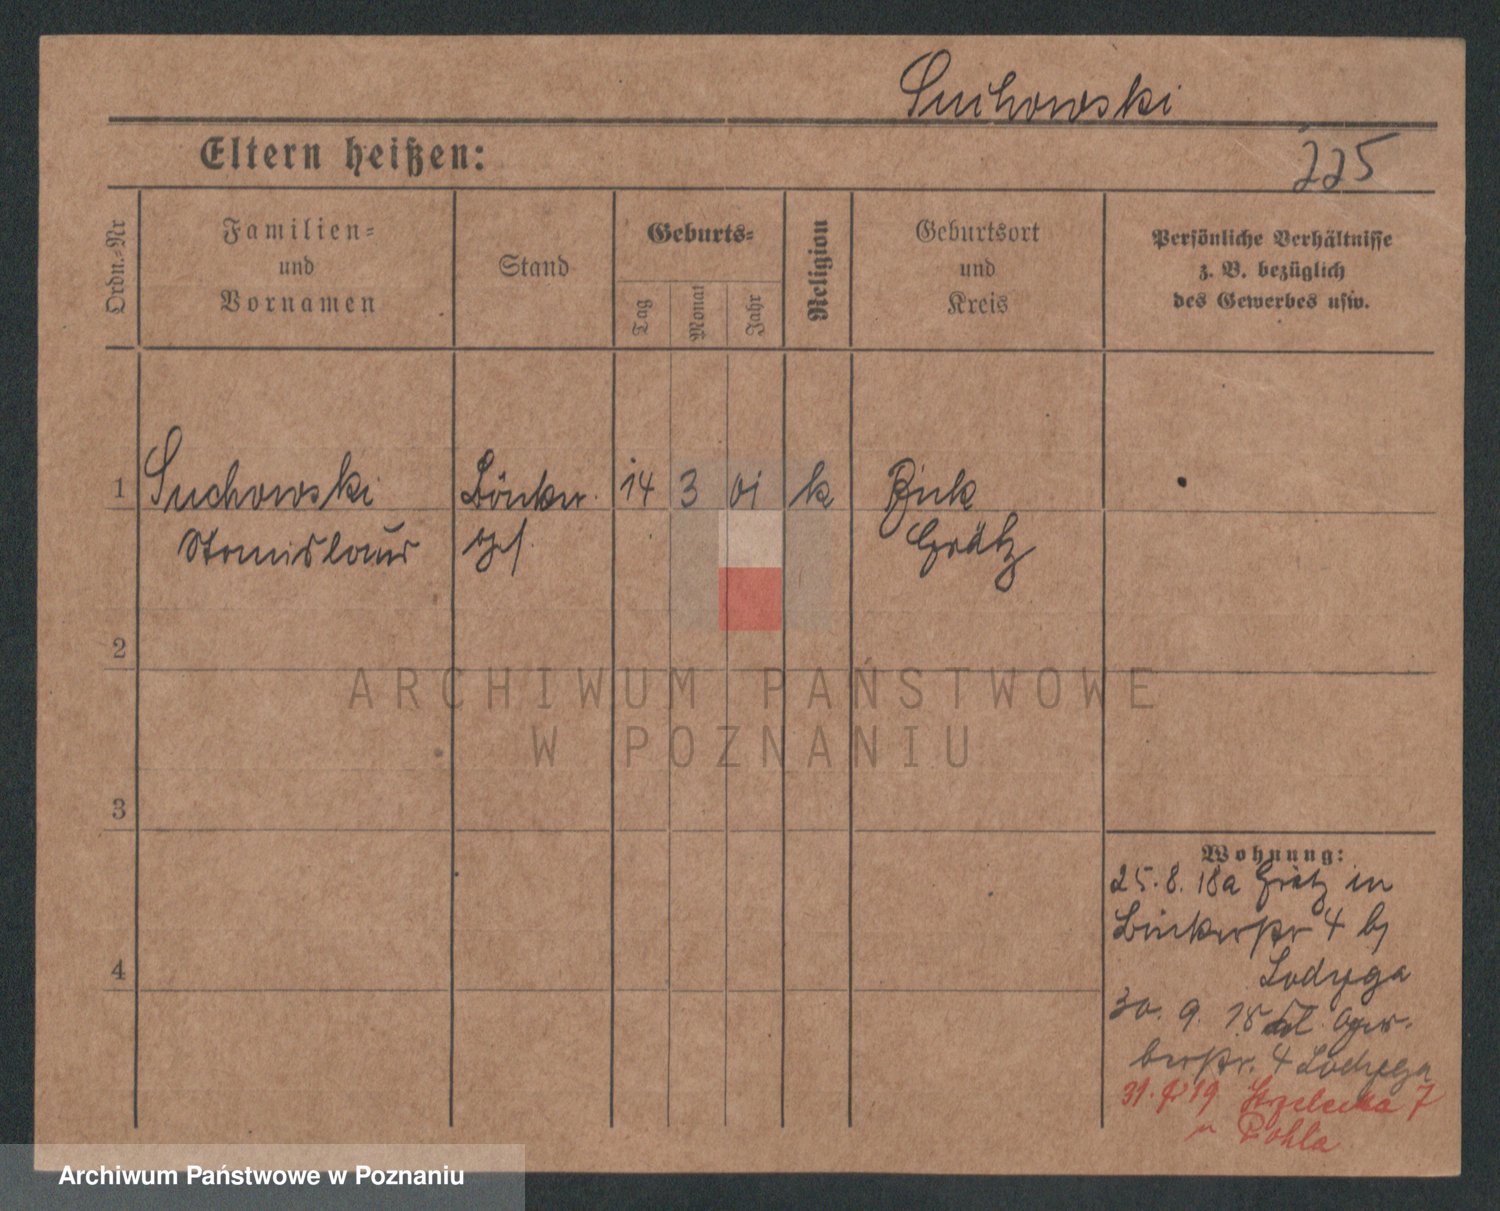 Suchowski
Eltern heißen:
225
Ordn.-Nr
Familien-
und
Vornamen
Stand
Geburts-
Tag
Monat
Jahr
Religion
Geburtsort
und
Kreis
Persönliche Verhältnisse
z. B. bezüglich
des Gewerbes usw.
1 Suchowski 14 3 01 k Buk
Stanislaus Grätz
2
3
4
ARCHIWUM PAŃSTWOWE
W POZNANIU
Wohnung:
25. 8. 18 a Grätz in
4 b/
Lodyga
30. 9. 18
berstr. 4 Lodyga
31. 19 Strzelecka 7
Pohla
Archiwum Państwowe w Poznaniu